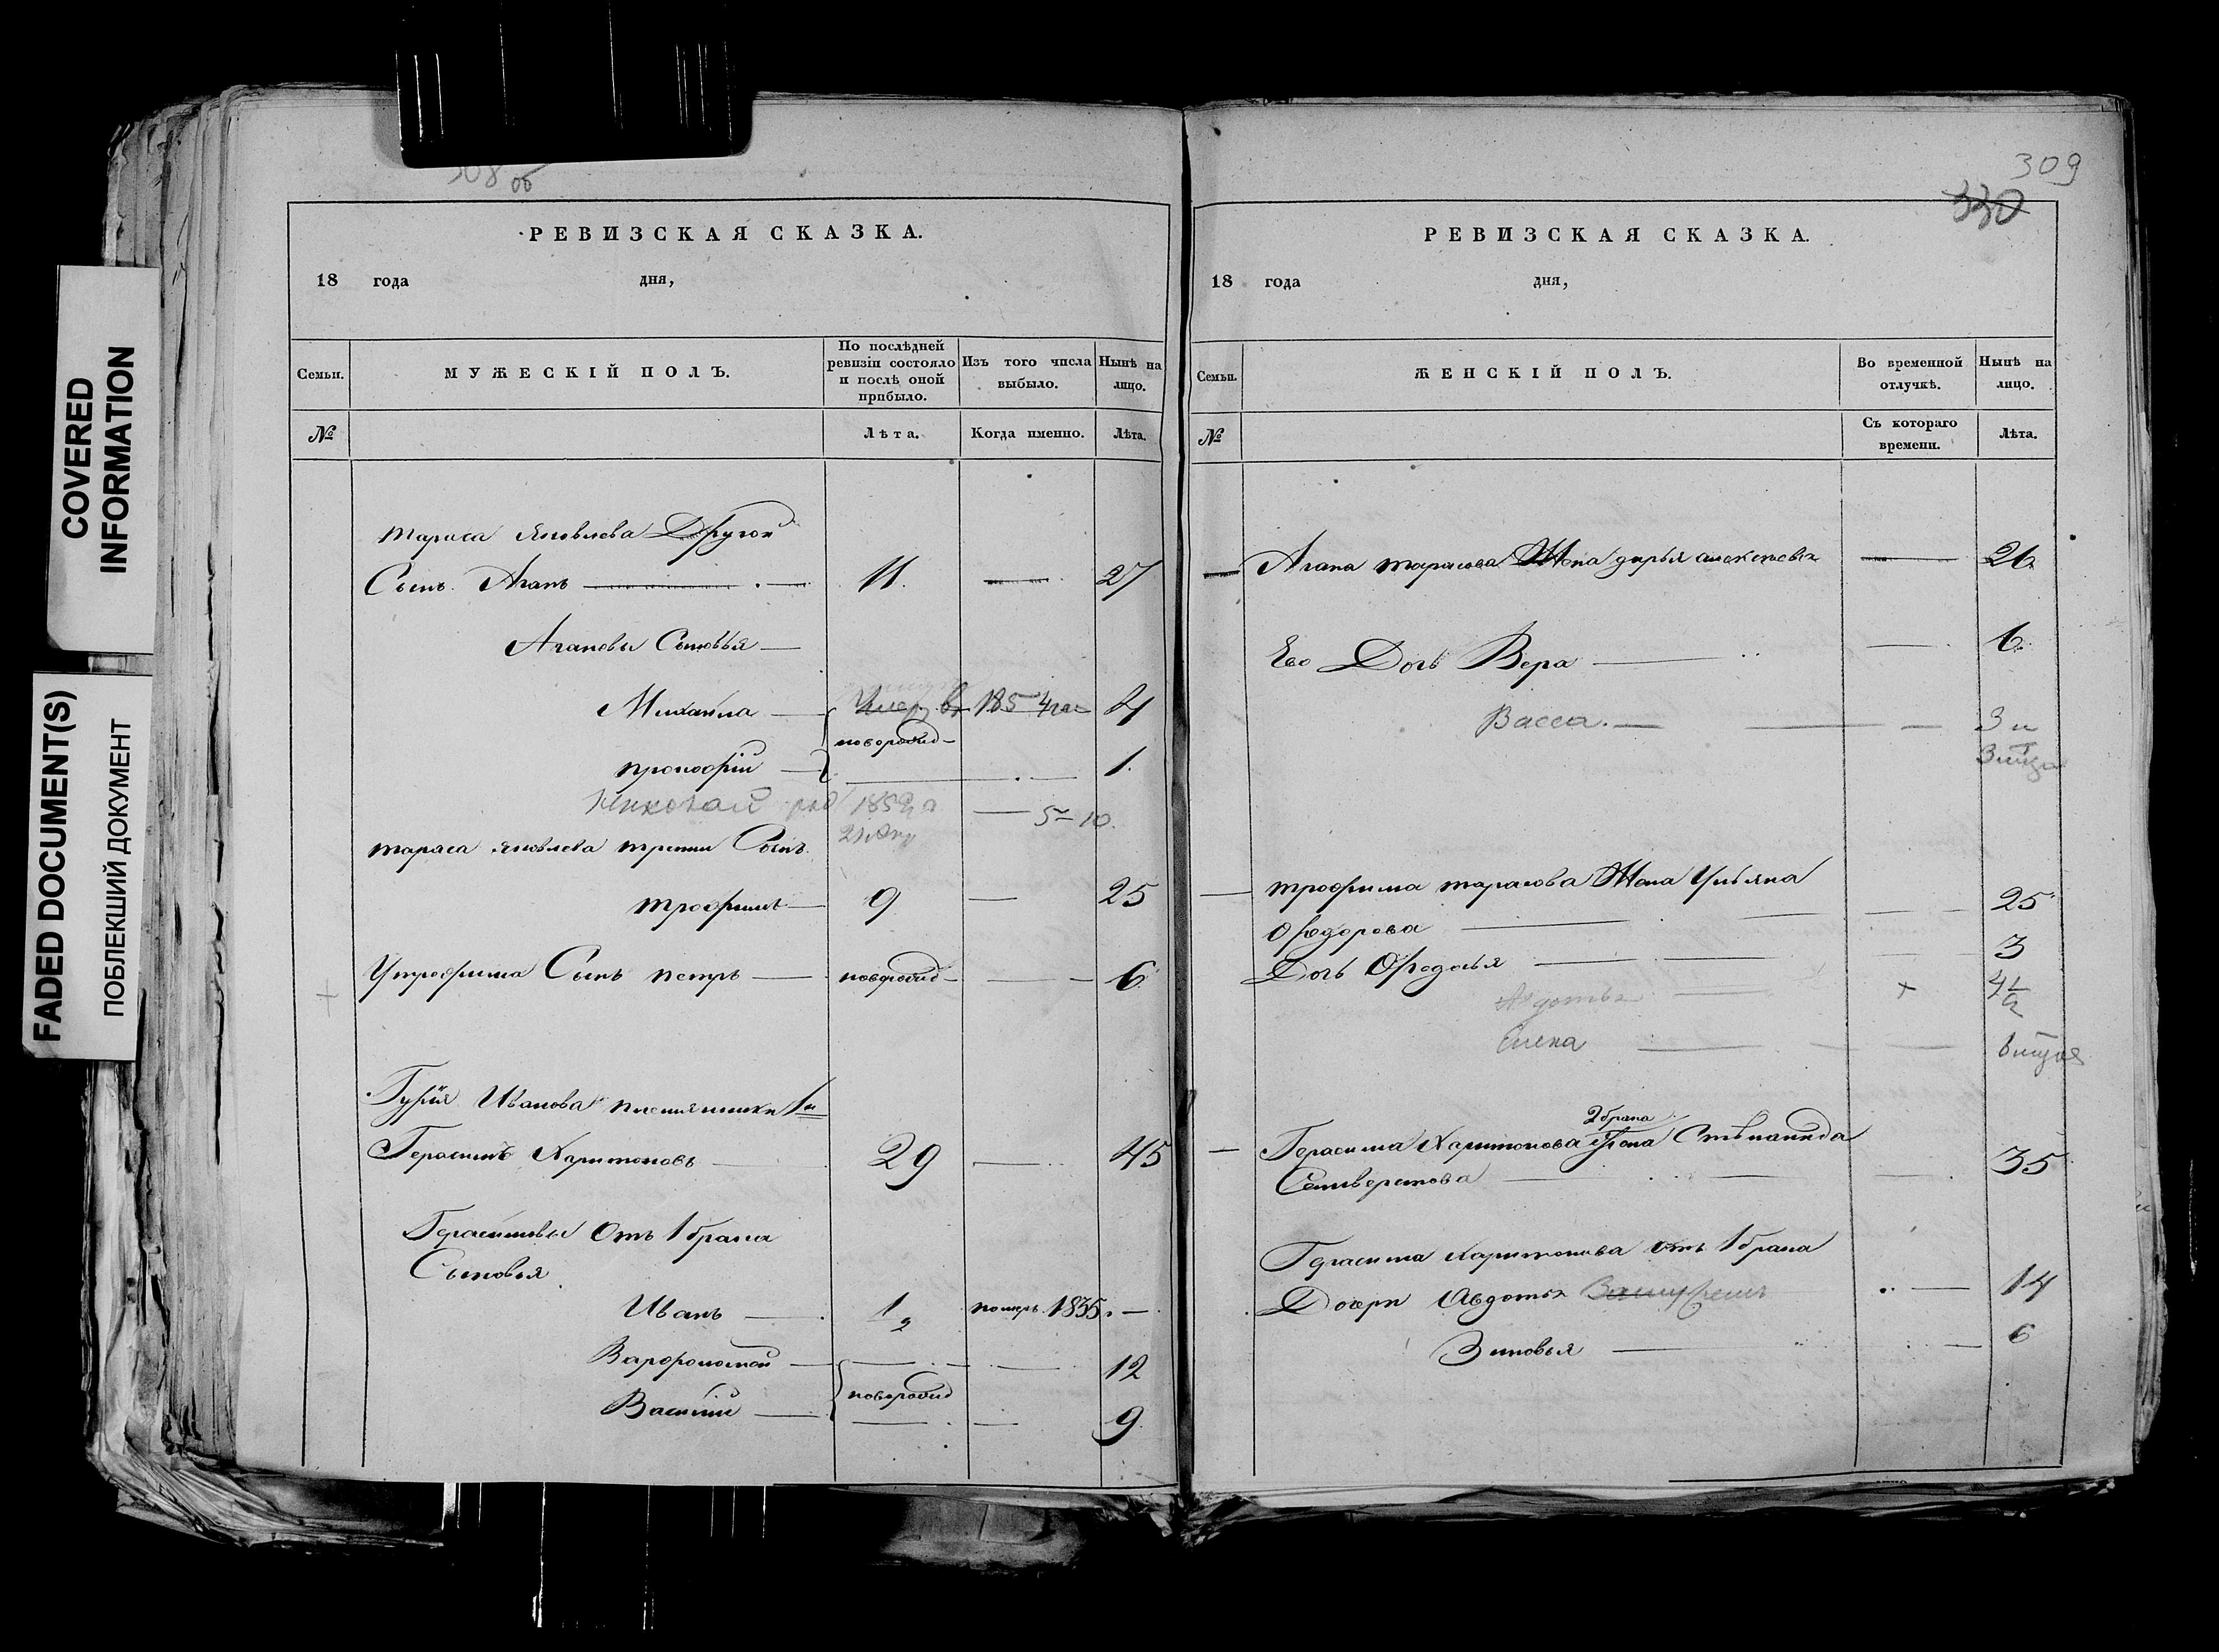 COVERED
INFORMATION
FADED DOCUMENT(S)
ПОБЛЕКШИЙ ДОКУМЕНТ
308 об
РЕВИЗСКАЯ СКАЗКА.
18 года дня,
Семьи.
МУЖЕСКІЙ ПОЛЪ.
По послѣдней
ревизіи состояло
и послѣ оной
прибыло.
Изъ того числа
выбыло.
Нынѣ на
лицо.
№
Лѣта.
Когда именно.
Лѣта.
Тараса Яковлева Другой
Сынъ Агапъ 11. 27
Агаповы Сыновья
Михайла 1854 4
новорожд
прокофій 1.
Николай род 185 5 10
тараса яковлева третій Сынъ
трофимъ 9 25
У трофима Сынъ петръ новорожд 6
Гурія Иванова племянники 1й
Герасимъ Харитоновъ 29 45
Герасимовы отъ 1 брака
Сыновья
Иванъ 1/2 померъ 1835
Варфоломей 12
новорожд
Василій 9
309
330
РЕВИЗСКАЯ СКАЗКА.
18 года дня,
Семьи.
ЖЕНСКІЙ ПОЛЪ.
Во временной
отлучкѣ.
Нынѣ на
лицо.
№
Съ котораго
времени.
Лѣта.
Агапа тарасова Жена дарья алексѣева 26
Его Дочь Вера 6.
Васса. 3 и
трофима тарасова Жена Ульяна
Ѳедорова 25
Дочь Ѳедосья 3
Авдотья + 4 1/2
Елена
2 брака
Герасима Харитонова Жена Степанида
Селиверстова 35
Герасима Харитонова отъ 1 брака
Дочери Авдотья 14
Зиновья 6